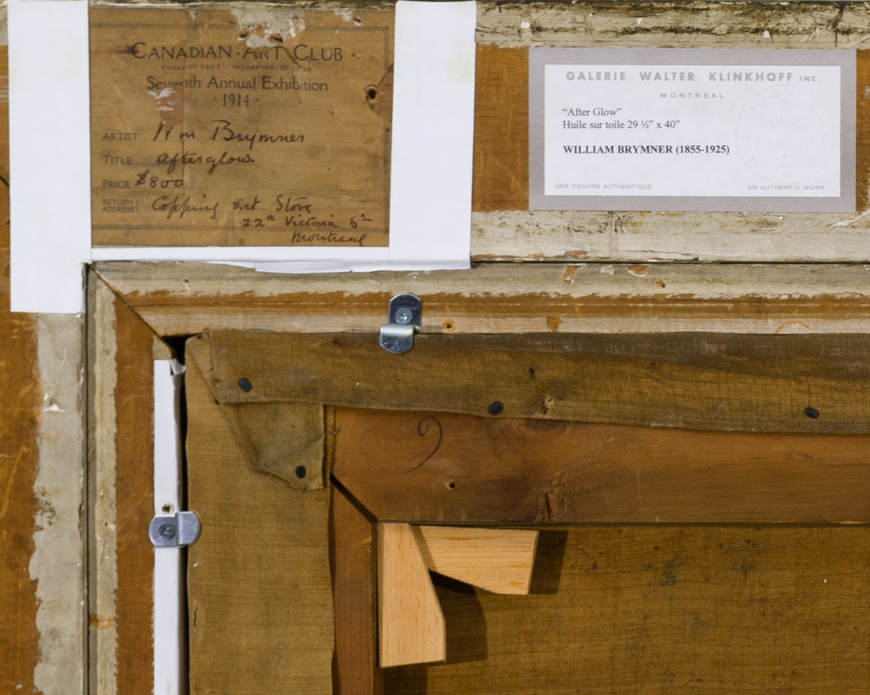 CANADIAN · ART CLUB ·
FOUNDED 1907 · INCORPORATED
Seventh Annual Exhibition
· 1914 ·
ARTIST Wm Brymner
TITLE Afterglow.
PRICE $800
RETURN ADDRESS Copping Art Store
22a Victoria St
Montreal
GALERIE WALTER KLINKHOFF INC.
MONTREAL
“After Glow”
Huile sur toile 29 ½” x 40”
WILLIAM BRYMNER (1855-1925)
UNE OEUVRE AUTHENTIQUE AN AUTHENTIC WORK
9